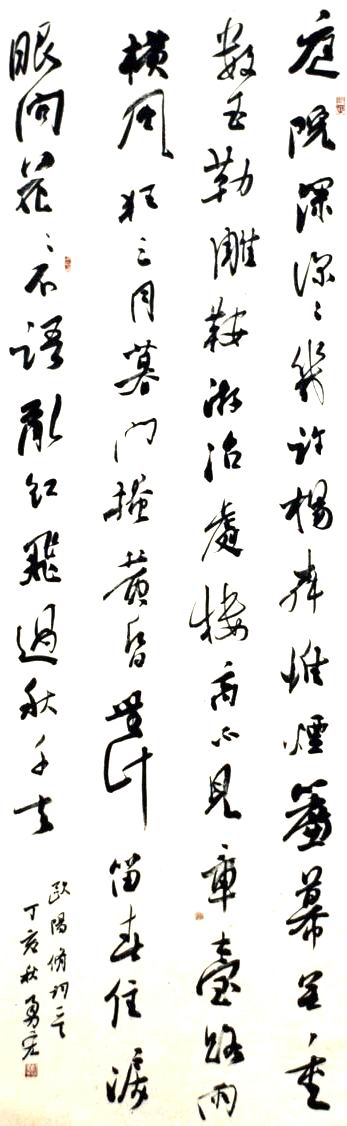 庭院深深〻幾許楊柳堆煙簾幕無重
數玉勒雕鞍游冶處樓高不見章臺路雨
橫風狂三月暮門掩黃昏無計留春住淚
眼問花〻不語亂紅飛過秋千去
歐陽脩詞一首
丁亥秋勇